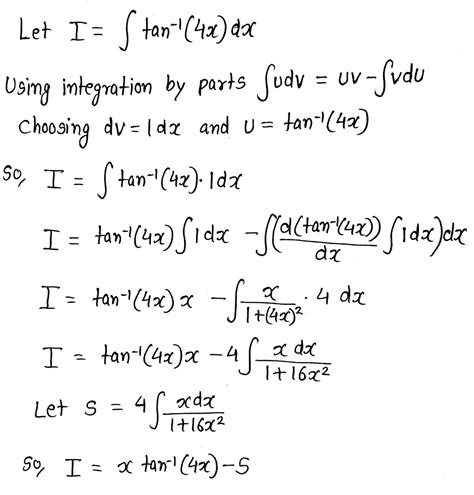 Let I = ∫ tan⁻¹(4x) dx
Using integration by parts ∫udv = uv - ∫vdu
Choosing dv = 1dx and u = tan⁻¹(4x)
So, I = ∫ tan⁻¹(4x) · 1dx
I = tan⁻¹(4x) ∫1dx - ∫((d(tan⁻¹(4x))/dx) ∫1dx) dx
I = tan⁻¹(4x) x - ∫ x/(1+(4x)²) · 4 dx
I = tan⁻¹(4x)x - 4∫ x dx/(1+16x²)
Let S = 4∫ xdx/(1+16x²)
So, I = x tan⁻¹(4x) - S